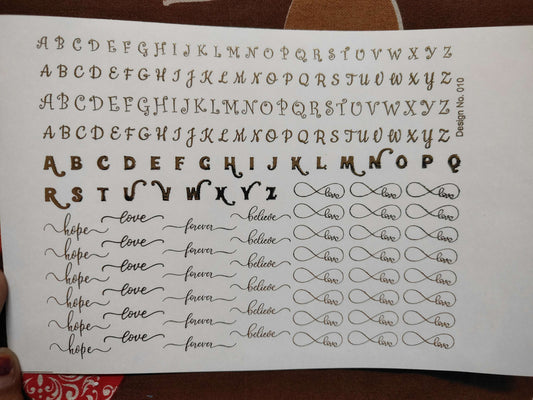 A B C D E F G H I J K L M N O P Q R S T U V W X Y Z
A B C D E F G H I J K L M N O P Q R S T U V W X Y Z
A B C D E F G H I J K L M N O P Q R S T U V W X Y Z
A B C D E F G H I J K L M N O P Q R S T U V W X Y Z
Design No. 010
A B C D E F G H I J K L M N O P Q
R S T U V W X Y Z
hope love forever believe
hope love forever believe
hope love forever believe
hope love forever believe
hope love forever believe
hope love forever believe
love love love
love love love
love love love
love love love
love love love
love love love
love love love
love love love